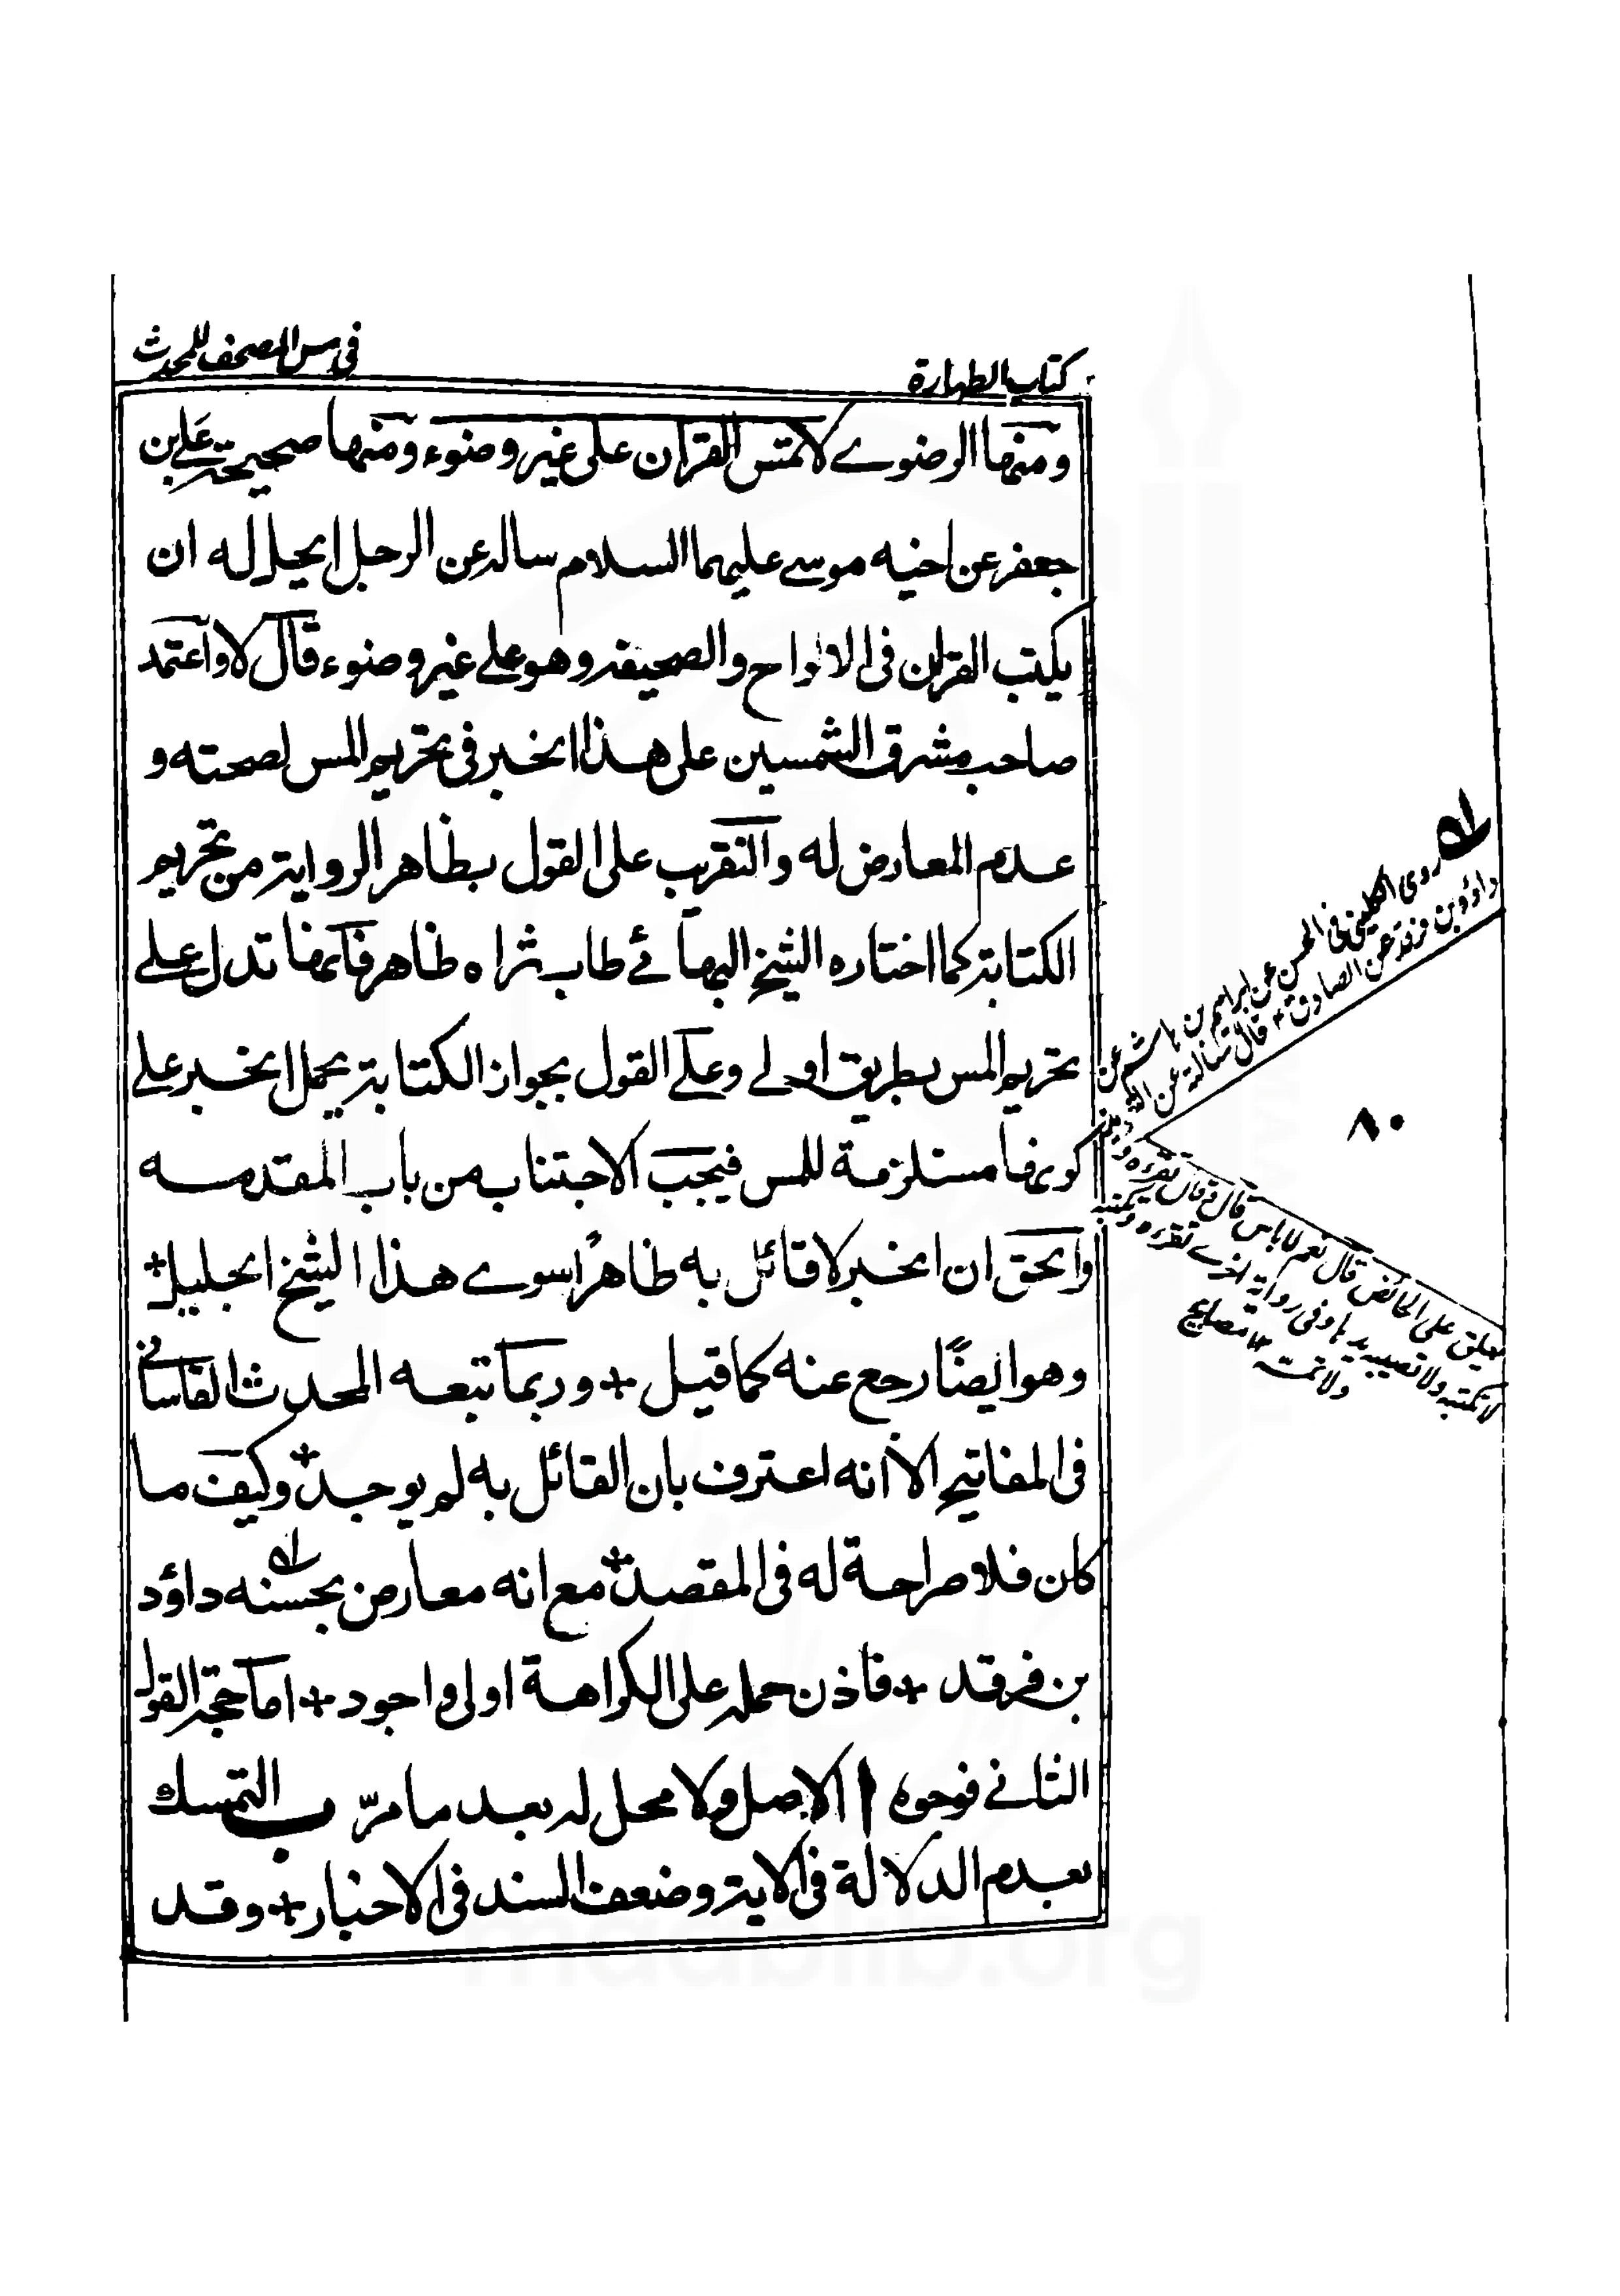 كتاب الطهارة
في مس المصحف للمحدث
ومنها الرضوے لا تمس القران على غير وضوء ومنها صحيحة علي بن
جعفر عن اخيه موسے عليهما السلام ساله عن الرجل ايحل له ان
يكتب القران في الالواح والصحيفة وهو علے غير وضوء قال لا واعتمد
صاحب مشرق الشمسين على هذا الخبر في تحريم المس لصحته و
عدم المعارض له والتقريب على القول بظاهر الرواية من تحريم
الكتابة كما اختاره الشيخ البهائے طاب ثراه ظاهر فانها تدل علے
تحريم المس بطريق اولے وعلے القول بجواز الكتابة يحمل الخبر علے
كونها مستلزمة للمس فيجب الاجتناب من باب المقدمه
والحق ان الخبر لا قائل به ظاهرا سوے هذا الشيخ الجليل +
وهو ايضًا رجع عنه كما قيل + وربما تبعه المحدث القاسانے
في المفاتيح الا انه اعترف بان القائل به لم يوجد + وكيف ما
كان فلا صراحة له في المقصد + مع انه معارض بحسنه داؤد
بن فرقد + فاذن حمله على الكراهة اولى واجود + اما حجة القول
الثانے فوجوه ا الاصل ولا محل له بعد ما مرّ ب التمسك
بعدم الدلالة في الاية وضعف السند في الاخبار + وقد
روى الكليني في الحسن عن ابراهيم بن هاشم عن
داؤد بن فرقد عن الصادق ع قال سالته عن التعويذ
يعلق على الحائض قال نعم لا باس قال وقال تقرءه وتكتبه
ولا تصيبه يدها وفي رواية اخرے تقرءه و
لا تكتبه
ولا تمسه ١٢ مصابيح
٨٠